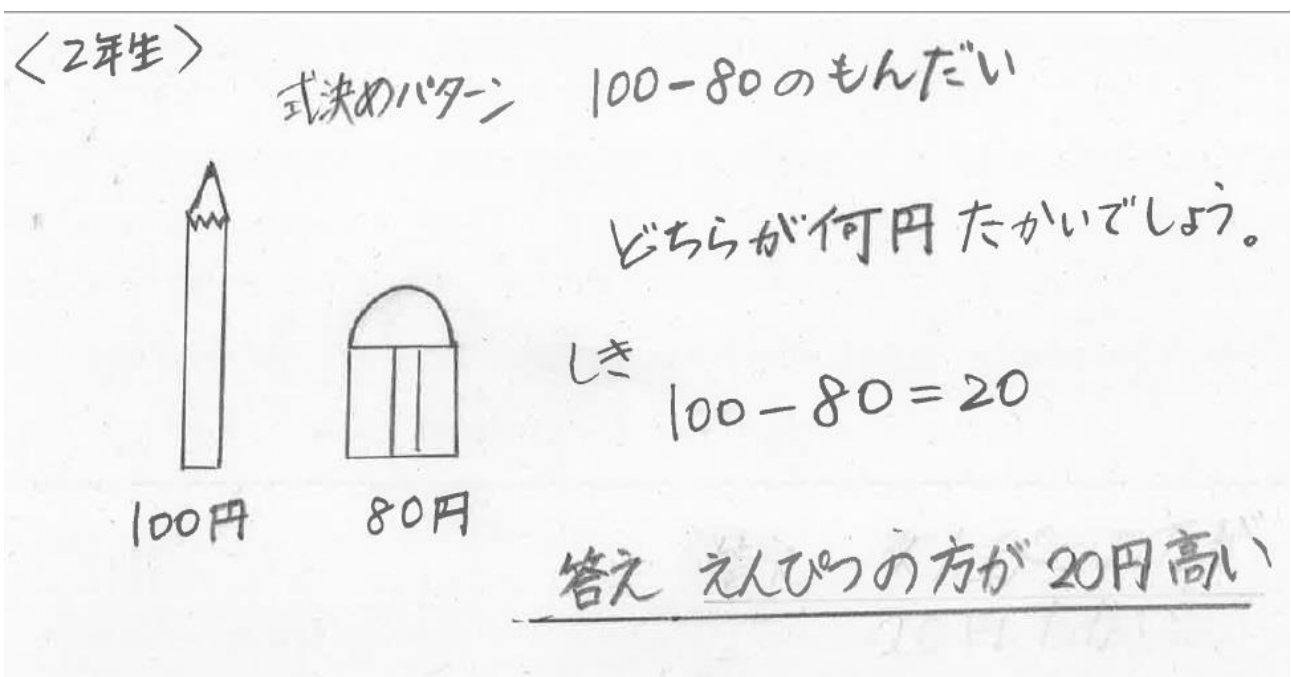 〈2年生〉
式決めパターン 100-80のもんだい
どちらが何円たかいでしょう。
しき
100-80=20
100円 80円
答え えんぴつの方が20円高い